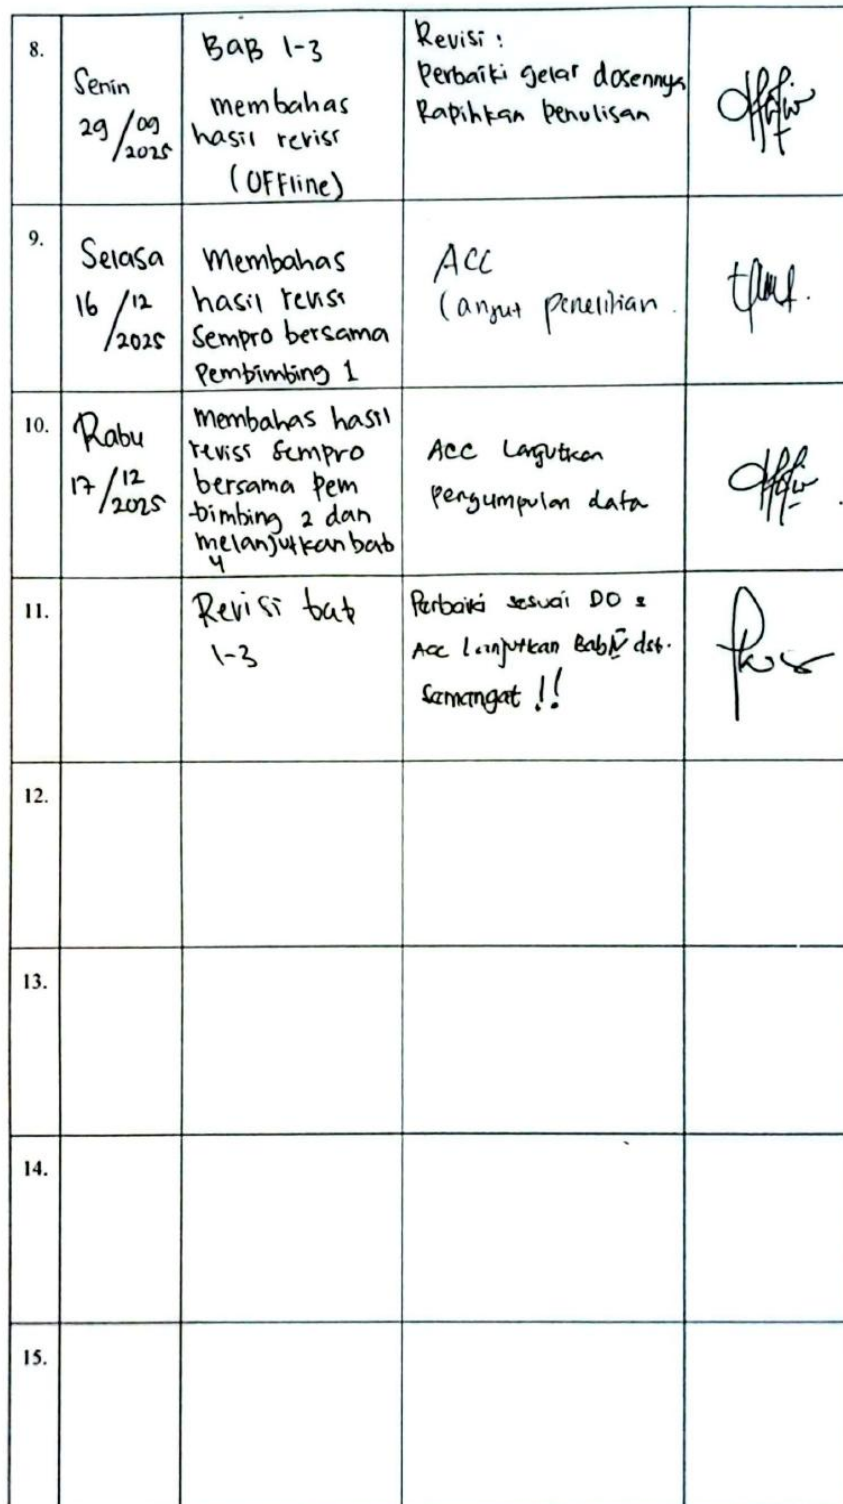 8.
Senin
29/09/2025
BAB 1-3
membahas
hasil revisi
(OFFline)
Revisi :
Perbaiki gelar dosennya
Rapihkan Penulisan
9.
Selasa
16/12/2025
Membahas
hasil revisi
Sempro bersama
Pembimbing 1
ACC
Lanjut penelitian.
10.
Rabu
17/12/2025
Membahas hasil
revisi Sempro
bersama Pem
bimbing 2 dan
melanjutkan bab
4
ACC Lanjutkan
pengumpulan data
11.
Revisi bab
1-3
Perbaiki sesuai DO
ACC Lanjutkan Bab IV dst.
Semangat !!
12.
13.
14.
15.